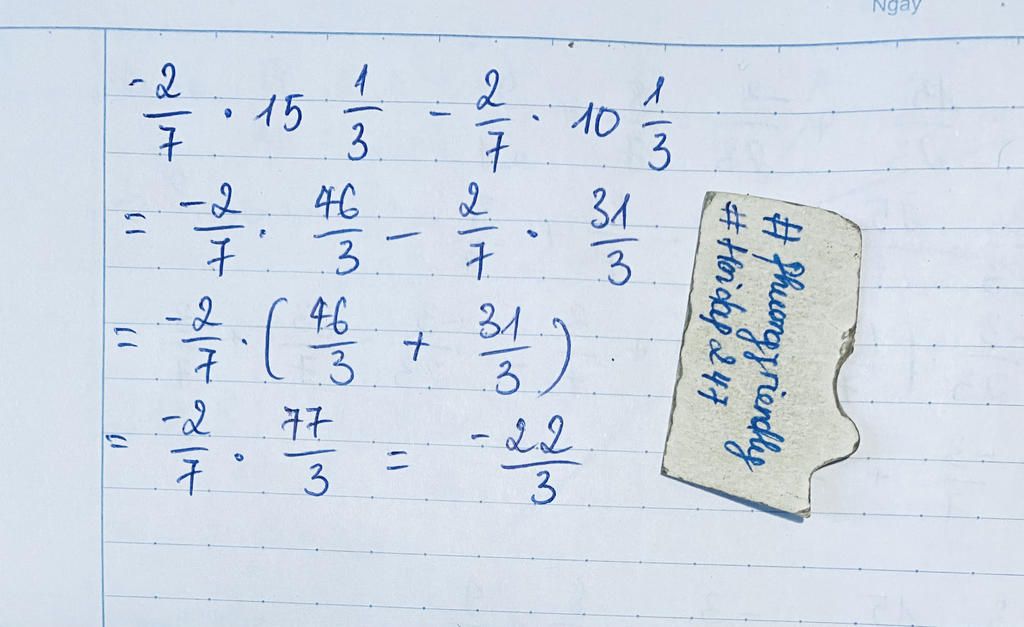 Ngày
-2/7 . 15 1/3 - 2/7 . 10 1/3
= -2/7 . 46/3 - 2/7 . 31/3
= -2/7 . (46/3 + 31/3)
= -2/7 . 77/3 = -22/3
# phuongfriendly
# Hoidap247